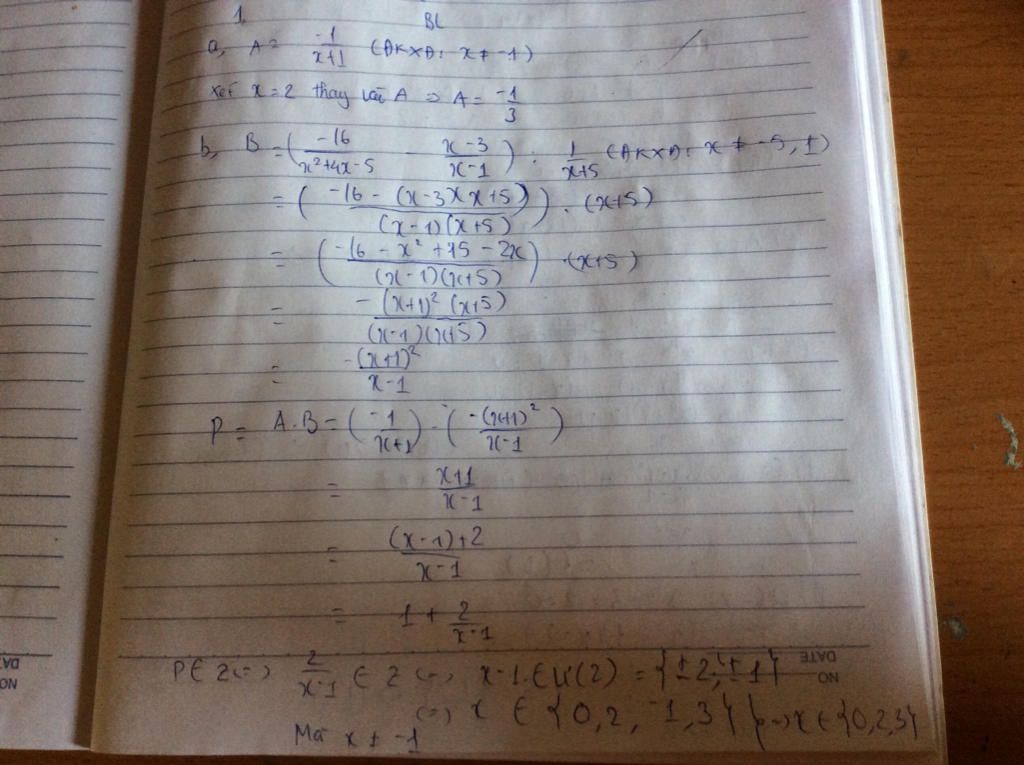 1. BL
a, A = -1/(x+1) (ĐKXĐ: x ≠ -1)
xét x = 2 thay vào A => A = -1/3
b, B = (-16/(x²+4x-5) - (x-3)/(x-1)) : 1/(x+5) (ĐKXĐ: x ≠ -5, 1)
= ((-16 - (x-3)(x+5))/((x-1)(x+5))) . (x+5)
= ((-16 - x² + 15 - 2x)/((x-1)(x+5))) . (x+5)
= -(x+1)²(x+5)/((x-1)(x+5))
= -(x+1)²/(x-1)
P = A.B = (-1/(x+1)) . (-(x+1)²/(x-1))
= (x+1)/(x-1)
= ((x-1)+2)/(x-1)
= 1 + 2/(x-1)
P ∈ Z <=> 2/(x-1) ∈ Z <=> x-1 ∈ Ư(2) = {±2, ±1}
<=> x ∈ {0, 2, -1, 3} } => x ∈ {0, 2, 3}
Mà x ≠ -1
NO
DATE
NO
DATE